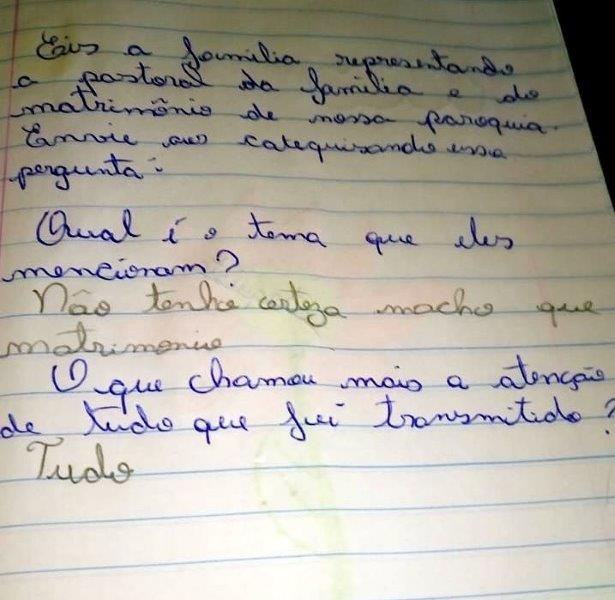 Eis a família representando
a pastoral da família e do
matrimônio de nossa paroquia.
Envie aos catequizando essa
pergunta:
Qual é o tema que eles
mencionam?
Não tenho certeza macho que
matrimonio
O que chamou mais a atenção
de tudo que foi transmitido?
Tudo